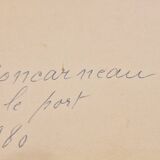 Concarneau
le port
1980